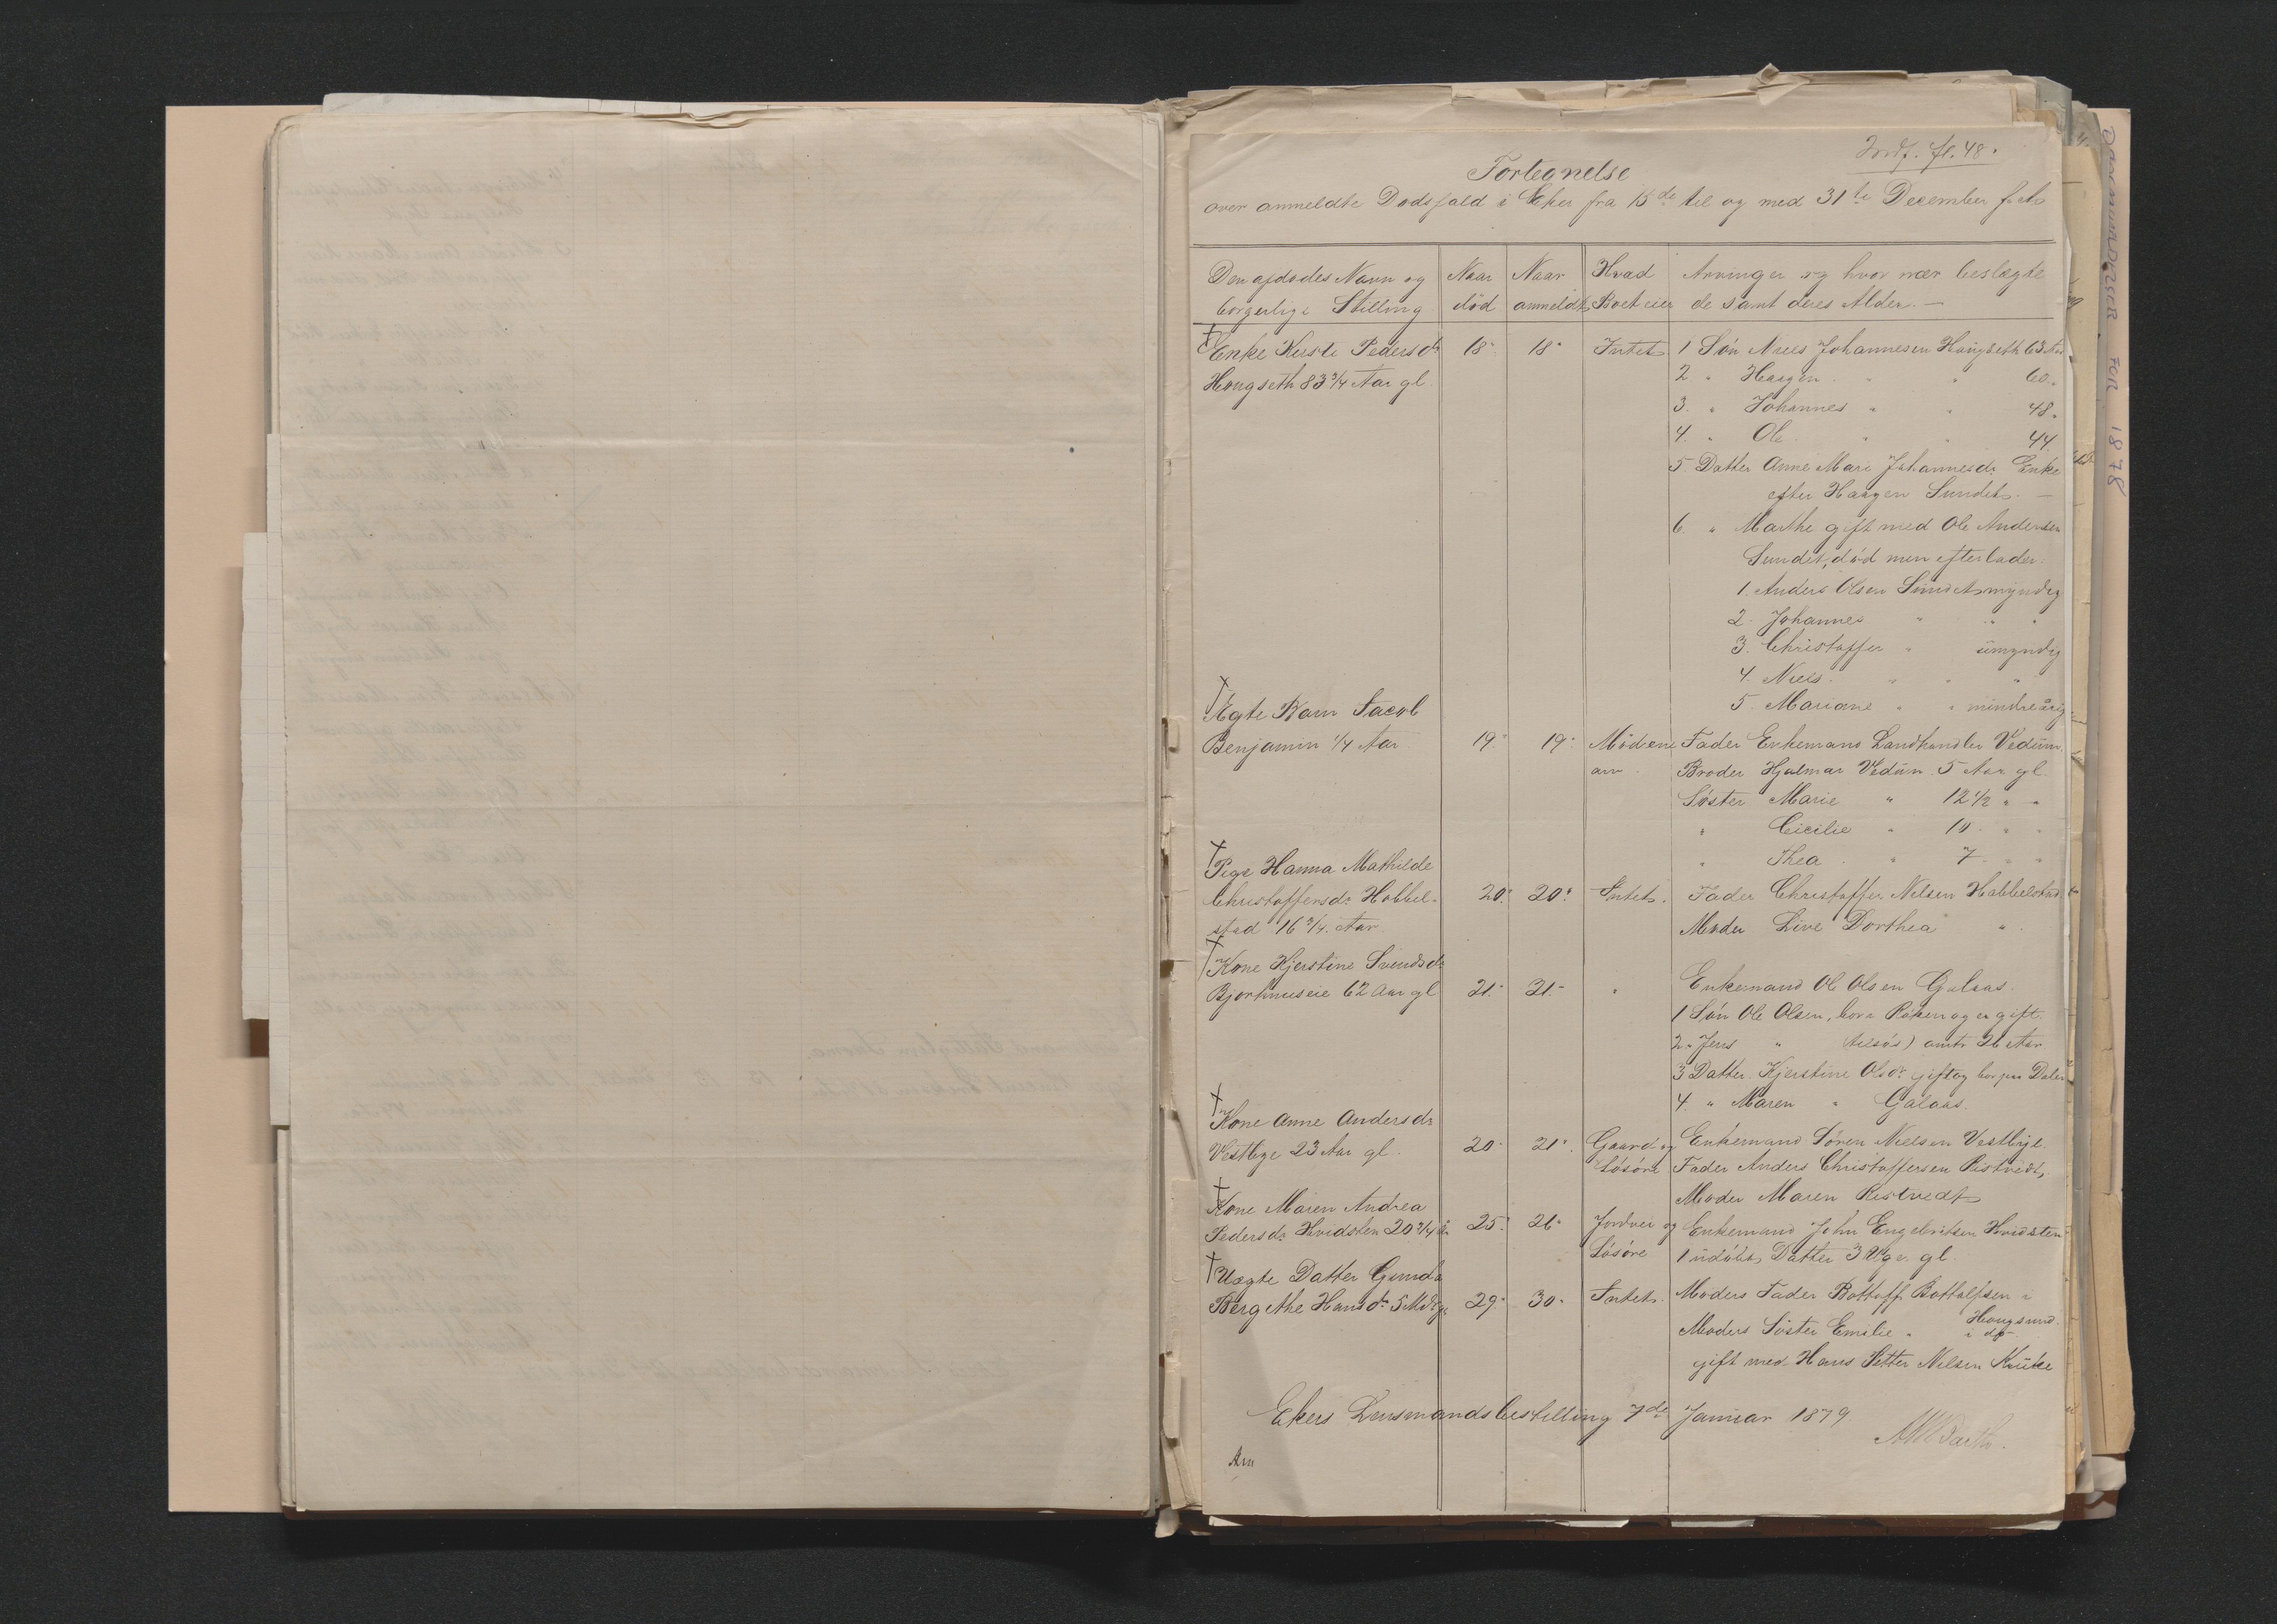 Indf. fl. 48.
Fortegnelse
over anmeldte Dødsfald i Eker fra 15de til og med 31te December f. A.
Den afdødes Navn og borgerlige Stilling
Naar død
Naar anmeldt
Hvad Boet eier
Arvinger og hvor nær beslægtede samt deres Alder. —
† Enke Kirsti Pedersdr 18. 18. Intet 1 Søn Niels Johannesen Haugseth 63 Aar
Hougseth 83 3/4 Aar gl. 2 " Haagen " " 60 "
3. " Johannes " " 48 "
4. " Ole " " 44.
5 Datter Anne Mari Johannesdr. Enke
efter Haagen Sundet. —
6. " Marthe gift med Ole Andersen
Sundet, død men efterlader:
1. Anders Olsen Sundet myndig
2. Johannes " " "
3. Christoffer " umyndig
4. Niels " " "
† Ægte Barn Jacob 5. Mariane " " mindreårig
Benjamin 1/4 Aar 19. 19. Mødrene Fader Enkemand Landhandler Vedum.
arv. Broder Hjalmar Vedum. 5 Aar gl.
Søster Marie " 12 1/2 " "
" Cicilie " 10 " "
† Pige Hanna Mathilde " Thea " 7 " "
Christoffersdr. Hobbel- 20. 20. Intet. Fader Christoffer Nilsen Habbelstad
stad 16 3/4. Aar. Moder Live Dorthea "
† Kone Kjerstine Svendsdr.
Bjørkmuseie 62 Aar gl 21. 21. " Enkemand Ole Olsen Galaas.
1 Søn Ole Olsen, bor i Røken og er gift.
2 " Jens " amtr 26 Aar
3 Datter Kjerstine Olsdr. gift og bor paa Dalen
† Kone Anne Andersdr 4. " Maren " Galaas.
Vestbye 23 Aar gl. 20. 21. Gaard og Enkemand Søren Nielsen Vestbye.
Løsøre Fader Anders Christoffersen Ristvedt,
† Kone Maren Andrea Moder Maren Ristvedt
Pedersdr. Hvidsten 20 3/4 25. 26. Jordvei og Enkemand John Engebritsen Hvidsten
Løsøre 1 udøbt Datter 3 Uger gl.
† Uægte Datter Gunda
Bergethe Hansdr. 5 Mdr gl 29. 30. Intet. Moders Fader Bottolf Bottolfsen i
Hougsund.
Moders Søster Emilie " i do
gift med Hans Petter Nilsen Kruke
Ekers Lensmandsbestilling 7de Januar 1879.
DØDSANMELDELSER FOR 1878